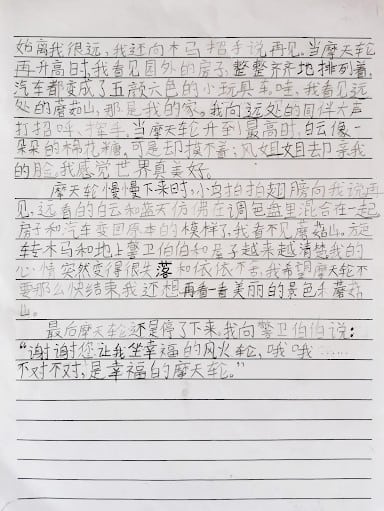 始离我很远,我还向木马招手说再见。当摩天轮
再升高时,我看见园外的房子,整整齐齐地排列着,
汽车都变成了五颜六色的小玩具车。哇,我看见远
处的蘑菇山,那是我的家。我向远处的同伴大声
打招呼、挥手。当摩天轮升到最高时,白云像一
朵朵的棉花糖,可是却摸不着;风姐姐却亲我
的脸,我感觉世界真美好。
摩天轮慢慢下来时,小鸟拍拍翅膀向我说再
见;远看的白云和蓝天仿佛在调色盘里混合在一起,
房子和汽车变回原本的模样了,我看不见蘑菇山。旋
转木马和地上警卫伯伯和屋子越来越清楚,我的
心情突然变得很失落和依依不舍,我希望摩天轮不
要那么快结束,我还想再看一看美丽的景色和蘑菇
山。
最后摩天轮还是停了下来。我向警卫伯伯说:
“谢谢您让我坐幸福的风火轮,哦哦……
不对不对,是幸福的摩天轮。”